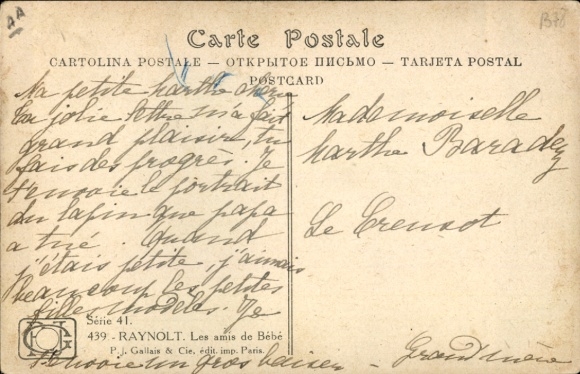 AA
B78
Carte Postale
CARTOLINA POSTALE — ОТКРЫТОЕ ПИСЬМО — TARJETA POSTAL
POSTCARD
Ma petite Marthe chérie
Ta jolie lettre m'a fait
grand plaisir, tu
fais des progrès. Je
t'envoie le portrait
du lapin que papa
a tué. Quand
j'étais petite, j'aimais
beaucoup les petites
filles modèles. Je
t'envoie un gros baiser
Grand'mère
Mademoiselle
Marthe
Le Creusot
Série 41.
439 - RAYNOLT. Les amis de Bébé
P. J. Gallais & Cie, édit. imp. Paris.